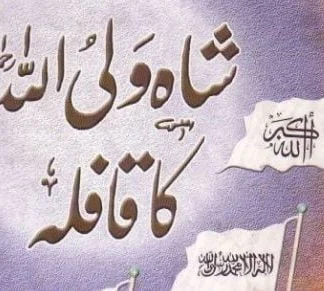 شاہ وَلیُ اللہؒ
کا قافلہ
اللہ اکبر
لا الہ الا اللہ محمد رسول اللہ